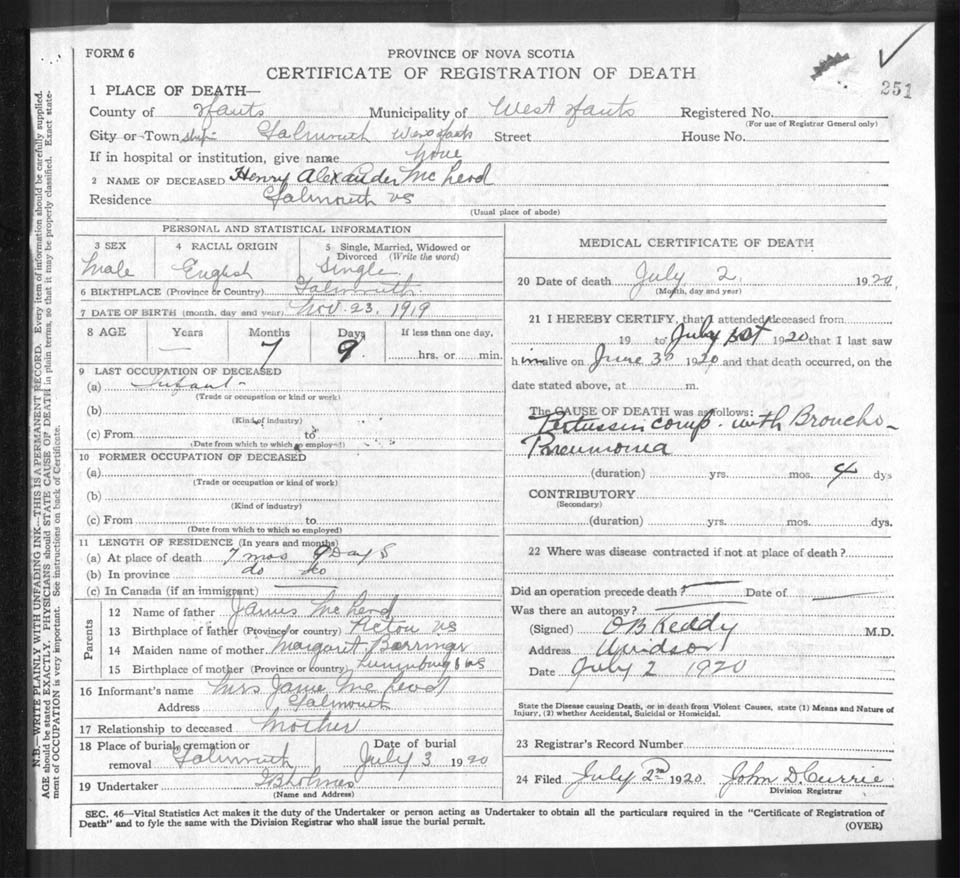 FORM 6
PROVINCE OF NOVA SCOTIA
CERTIFICATE OF REGISTRATION OF DEATH
251
1 PLACE OF DEATH—
County of Hants Municipality of West Hants Registered No.
(For use of Registrar General only)
City or Town ship Falmouth West Hants Street House No.
If in hospital or institution, give name None
2 NAME OF DECEASED Henry Alexander Mc Leod
Residence Falmouth NS
(Usual place of abode)
PERSONAL AND STATISTICAL INFORMATION
3 SEX 4 RACIAL ORIGIN 5 Single, Married, Widowed or Divorced (Write the word)
Male English Single
6 BIRTHPLACE (Province or Country) Falmouth
7 DATE OF BIRTH (month, day and year) Nov. 23, 1919
8 AGE Years Months Days If less than one day,
— 7 9 hrs. or min.
9 LAST OCCUPATION OF DECEASED
(a) Infant
(Trade or occupation or kind or work)
(b)
(Kind of industry)
(c) From to
(Date from which to which so employed)
10 FORMER OCCUPATION OF DECEASED
(a)
(Trade or occupation or kind of work)
(b)
(Kind of industry)
(c) From to
(Date from which to which so employed)
11 LENGTH OF RESIDENCE (In years and months)
(a) At place of death 7 mos 9 Days
(b) In province do do
(c) In Canada (if an immigrant)
Parents
12 Name of father James Mc Leod
13 Birthplace of father (Province or country) Pictou NS
14 Maiden name of mother Margaret Barringer
15 Birthplace of mother (Province or country) Lunenburg NS
16 Informant's name Mrs Mc Leod
Address Falmouth
17 Relationship to deceased Mother
18 Place of burial, cremation or removal Falmouth Date of burial July 3 1920
19 Undertaker Holmes
(Name and Address)
MEDICAL CERTIFICATE OF DEATH
20 Date of death July 2 1920
(Month, day and year)
21 I HEREBY CERTIFY, that I attended deceased from
19 to July 1st 1920 that I last saw
h im alive on June 30 1920 and that death occurred, on the
date stated above, at m.
The CAUSE OF DEATH was as follows:
Pertussis comp. with Broncho-
Pneumonia
(duration) yrs. mos. 4 dys
CONTRIBUTORY
(Secondary)
(duration) yrs. mos. dys.
22 Where was disease contracted if not at place of death?
Did an operation precede death? Date of
Was there an autopsy?
(Signed) O B Keddy M.D.
Address Windsor
Date July 2 1920
State the Disease causing Death, or in death from Violent Causes, state (1) Means and Nature of
Injury, (2) whether Accidental, Suicidal or Homicidal.
23 Registrar's Record Number
24 Filed July 2nd 1920 John D. Currie
Division Registrar
SEC. 46—Vital Statistics Act makes it the duty of the Undertaker or person acting as Undertaker to obtain all the particulars required in the "Certificate of Registration of
Death" and to fyle the same with the Division Registrar who shall issue the burial permit.
(OVER)
N.B.—WRITE PLAINLY WITH UNFADING INK—THIS IS A PERMANENT RECORD. Every item of information should be carefully supplied.
AGE should be stated EXACTLY. PHYSICIANS should STATE CAUSE OF DEATH in plain terms, so that it may be properly classified. Exact state-
ment of OCCUPATION is very important. See instructions on back of Certificate.